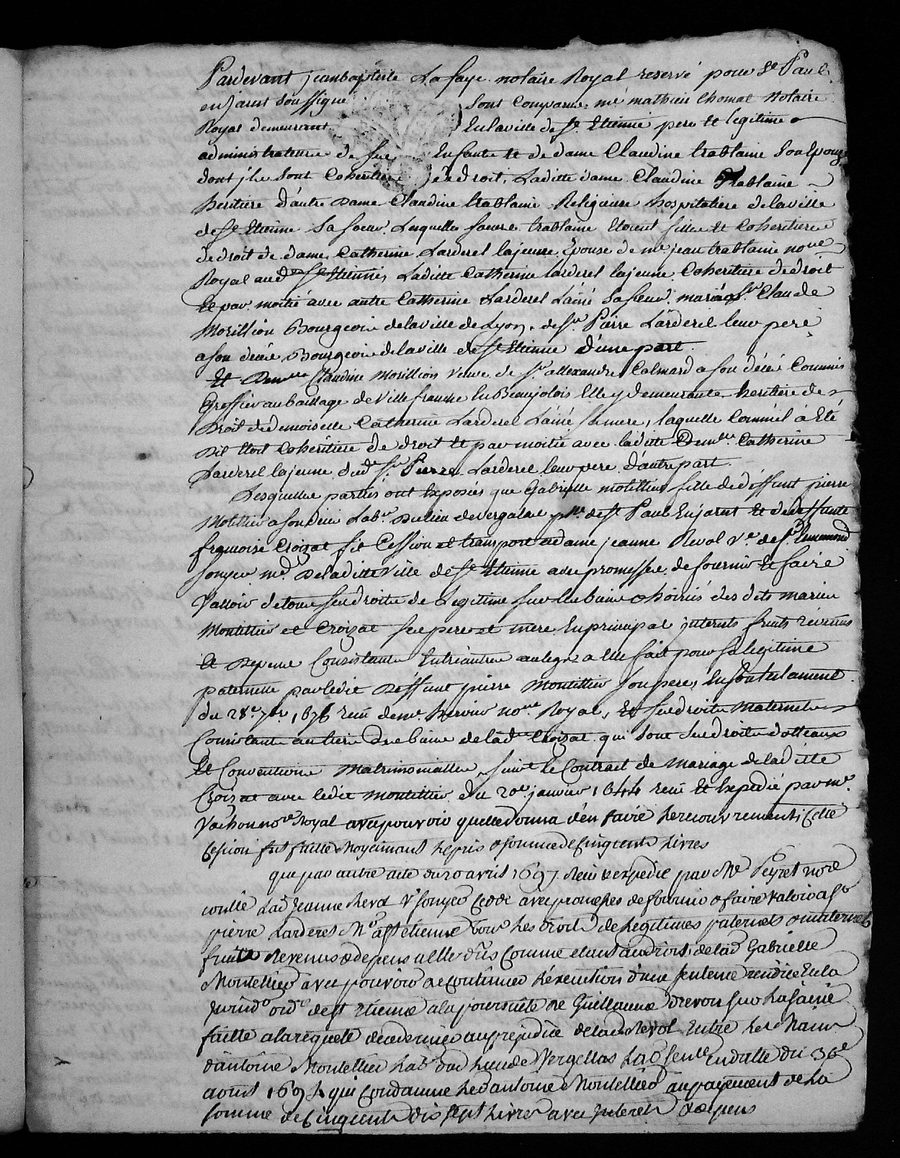 Pardevant jeanbaptiste La faye notaire Royal reservé pour St Paul
en jarest soussigné sont comparus me mathieu thomas Notaire
Royal demeurant en la ville de St Etienne pere et legitime
administrateur de ses Enfants et de dame Claudine trablaine son Epouze
dont ils sont Coheritiers de droit, Laditte dame Claudine trablaine
heritiere d'autre Dame Claudine trablaine Religieuse hospitaliere de la ville
de St Etienne sa soeur, Lesquelles soeurs trablaine Etoient filles et Coheritieres
de droit de dame Catherine Larderel lajeune Epouse de me jean trablaine nore
Royal aud St Etienne, Laditte Catherine larderel lajeune Coheritiere de droit
et par moitié avec autre Catherine Larderel Lainé sa soeur mariée a Sr Claude
Morillion Bourgeois de la ville de Lyon, de Sr Pierre Larderel leur pere
a son decée Bourgeois de la ville de St Etienne d'une part.
Et Demlle Claudine Morillion Veuve de Sr alexandre Calmard a son décée Commis
Greffier au Baillage de Ville franche en Beaujolois Elle y demeurante heritiere de
droit de demoiselle Catherine Larderel Lainé sa mere, laquelle Comme il a Eté
Dit Etoit Coheritiere de droit et par moitié avec laditte Demlle Catherine
Larderel lajeune dud Sr Pierre Larderel leur pere, d'autre part.
Lesquelles parties ont Exposés que Gabrielle motillier fille de deffunt pierre
Motillier a son décée Labr du lieu de vergalas psse de St Paul En jarest et de deffunte
françoise Croizat fit Cession et transport a dame jeanne Reval Ve de Sr
Sonyer md de laditte Ville de St Etienne avec promesse de fournir et faire
Valloir de tous ses droits de Legitime sur les biens et hoiries des dits mariés
Montillier et Croizat ses pere et mere En principal interets fruits revenus
et depens Consistants au legat a Elle fait pour sa legitime
paternelle par ledit deffunt pierre Montillier son pere, En son testament
du 28e 7bre 1676 receu de me nore Royal, Et ses droits Maternels
Consistants au tiers des biens de lade Croizat qui sont ses droits
et Conventions Matrimonialles suivt le Contrat de Mariage de la ditte
Croizat avec ledit montillier du 20e janvier 1644 receu et Expedié par me
Vachon nore Royal avec pouvoir quelle donna d'en faire le recouvrement, Cette
Cession fut faitte Moyennant le prix et somme de Cinquante Livres
que par autre acte du 20 avril 1697 Receu et expedié par Me Peyret nore
Lad Jeanne Reval Ve Sonyer Ceda avec promesses de fournir et faire valoir a Sr
pierre Larderel Md a St Etienne tous les droits de legitimes paternels et maternels
fruits Revenus et depens a elle dus Comme etant aux droits de lad Gabrielle
Montillier avec pouvoir de Continuer l'execution d'une sentence rendue En la
jurisdon ordre de St Etienne a la poursuite de Guillaume sur la saisie
faitte a la requete de ce dernier au préjudice de lad Reval Entre les Mains
d'antoine Montellier habt du Lieu de Vergellas Lad sence En datte du 30e
avril 1694 qui Condamne led antoine Montellier au payement de la
somme de Cinquante dix sept Livres avec interets et depens